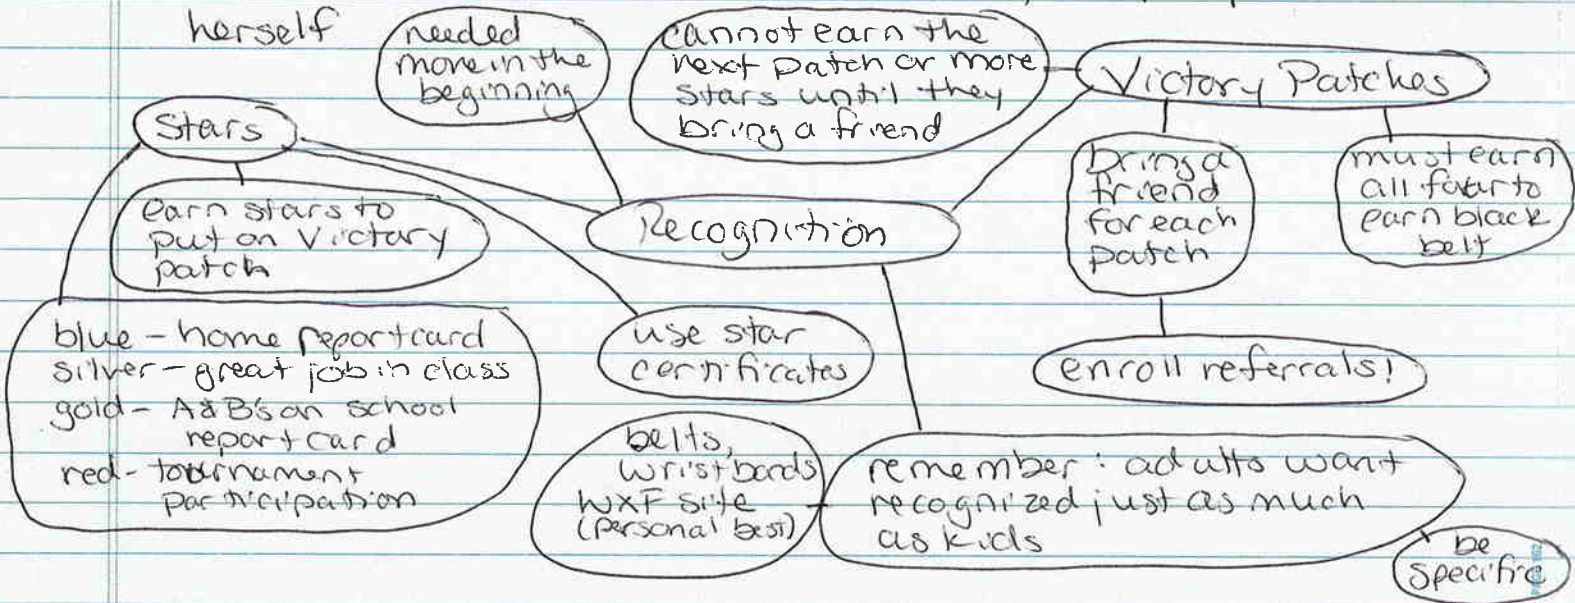 herself
needed
more in the
beginning
cannot earn the
next patch or more
stars until they
bring a friend
Victory Patches
Stars
bring a
friend
for each
patch
must earn
all four to
earn black
belt
earn stars to
put on Victory
patch
Recognition
blue - home report card
silver - great job in class
gold - A&B's on school
report card
red - tournament
participation
use star
certificates
enroll referrals!
belts,
wristbands
WXF site
(personal best)
remember: adults want
recognized just as much
as kids
be
specific